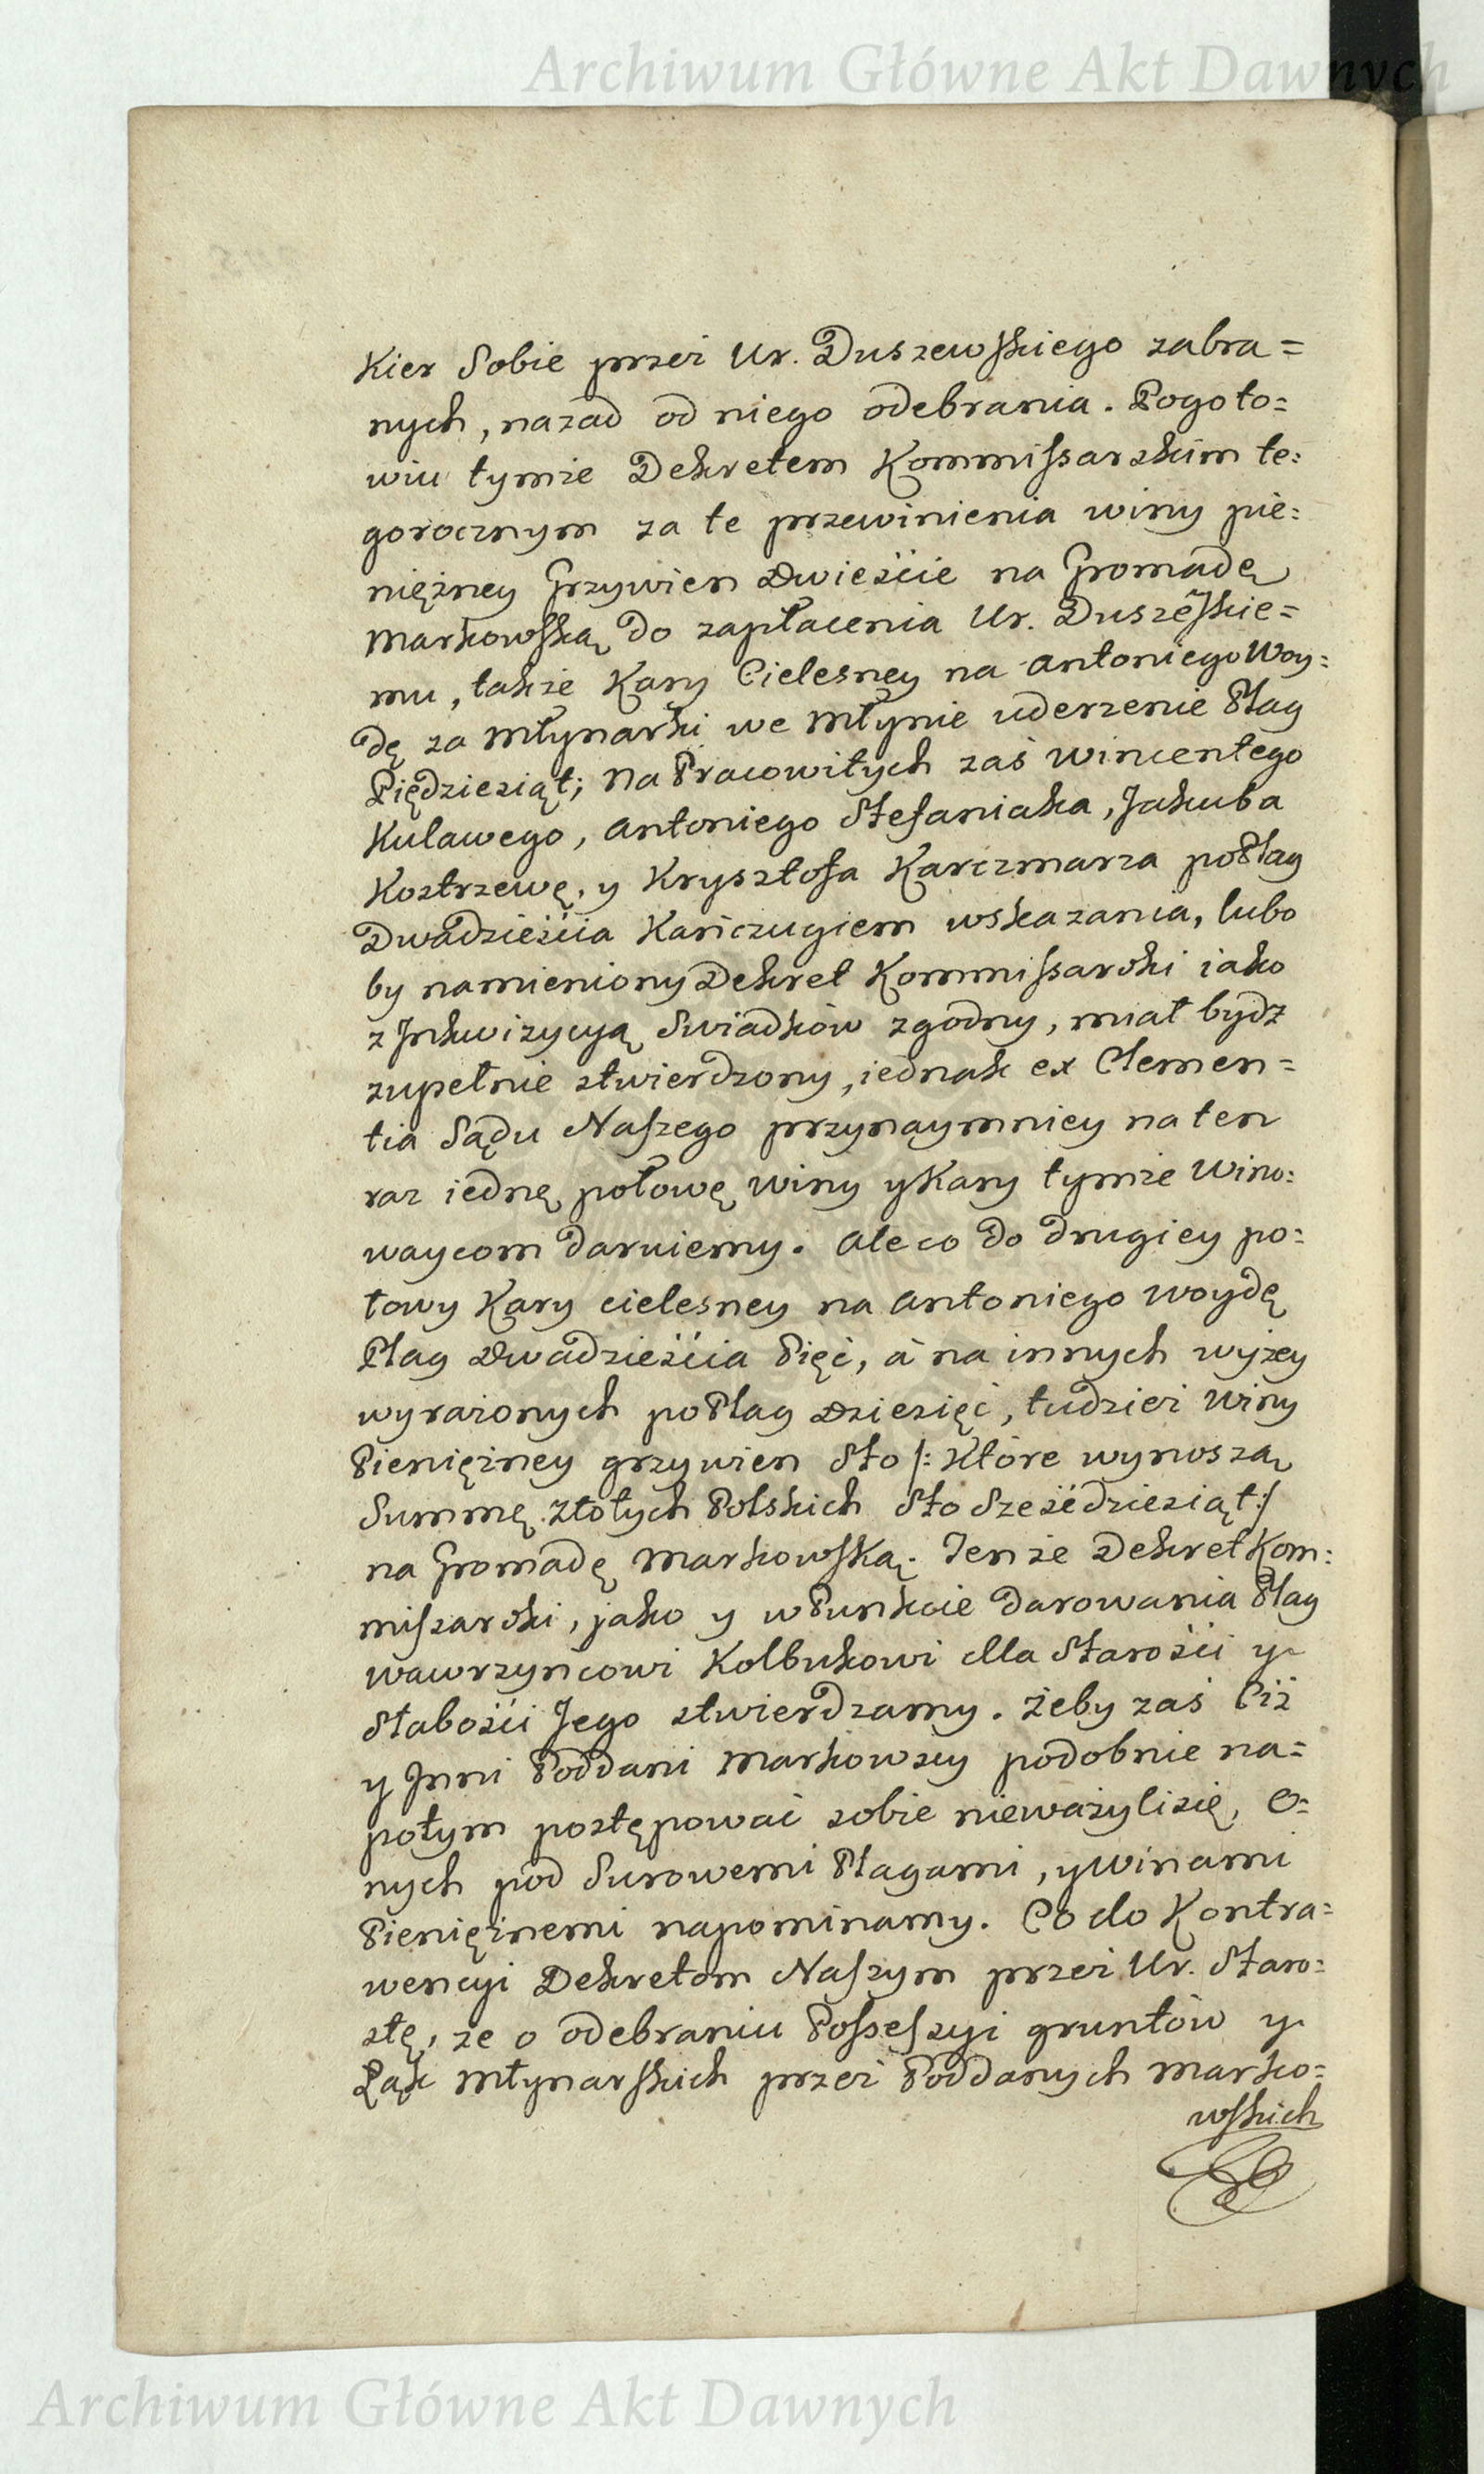 Archiwum Główne Akt Dawnych
Kier Sobie przez Ur. Duszewskiego zabra=
nych, nazad od niego odebrania. Pogoto=
wiu tymże Dekretem Kommissarskim te=
gorocznym za te przewinienia winy pie=
niężney Grzywien Dwieście na Gromadę
Markowską do zapłacenia Ur. Duszeskie=
mu, także Kary Cielesney na Antoniego Woy=
dę za Młynarki we Młynie uderzenie Plag
Pięćdziesiąt; Na Pracowitych zaś Wincentego
Kulawego, Antoniego Stefaniaka, Jakuba
Kostrzewę, y Krysztofa Karczmarza po Plag
Dwadzieścia Kańczugiem wskazania, lubo
by namieniony Dekret Kommissarski iako
z Inkwizycyą Swiadków zgodny, miał bydz
zupełnie stwierdzony, iednak ex Clemen=
tia Sądu Naszego przynaymniey na ten
raz iednę połowę winy y Kary tymże Wino=
waycom daruiemy. Ale co do drugiey po=
łowy Kary cielesney na Antoniego Woydę
Plag Dwadzieścia Pięć, a na innych wyżey
wyrażonych po Plag Dziesięć, tudzież Winy
Pieniężney grzywien Sto /: Które wynoszą
Summę Złotych Polskich Sto Sześćdziesiąt :/
na Gromadę Markowską. Tenże Dekret Kom=
missarski, jako y w Punkcie darowania Plag
Wawrzyncowi Kolbukowi dla Starości y
Słabości Jego stwierdzamy. Żeby zaś Ciż
y Inni Poddani Markowscy podobnie na=
potym postępować sobie nieważylisię, O=
nych pod Surowemi Plagami, y Winami
Pieniężnemi napominamy. Co do Kontra=
wencyi Dekretom Naszym przez Ur. Staro=
stę, że o odebraniu Possessyi gruntów y
Łąk Młynarskich przez Poddanych Marko=
wskich
Archiwum Główne Akt Dawnych